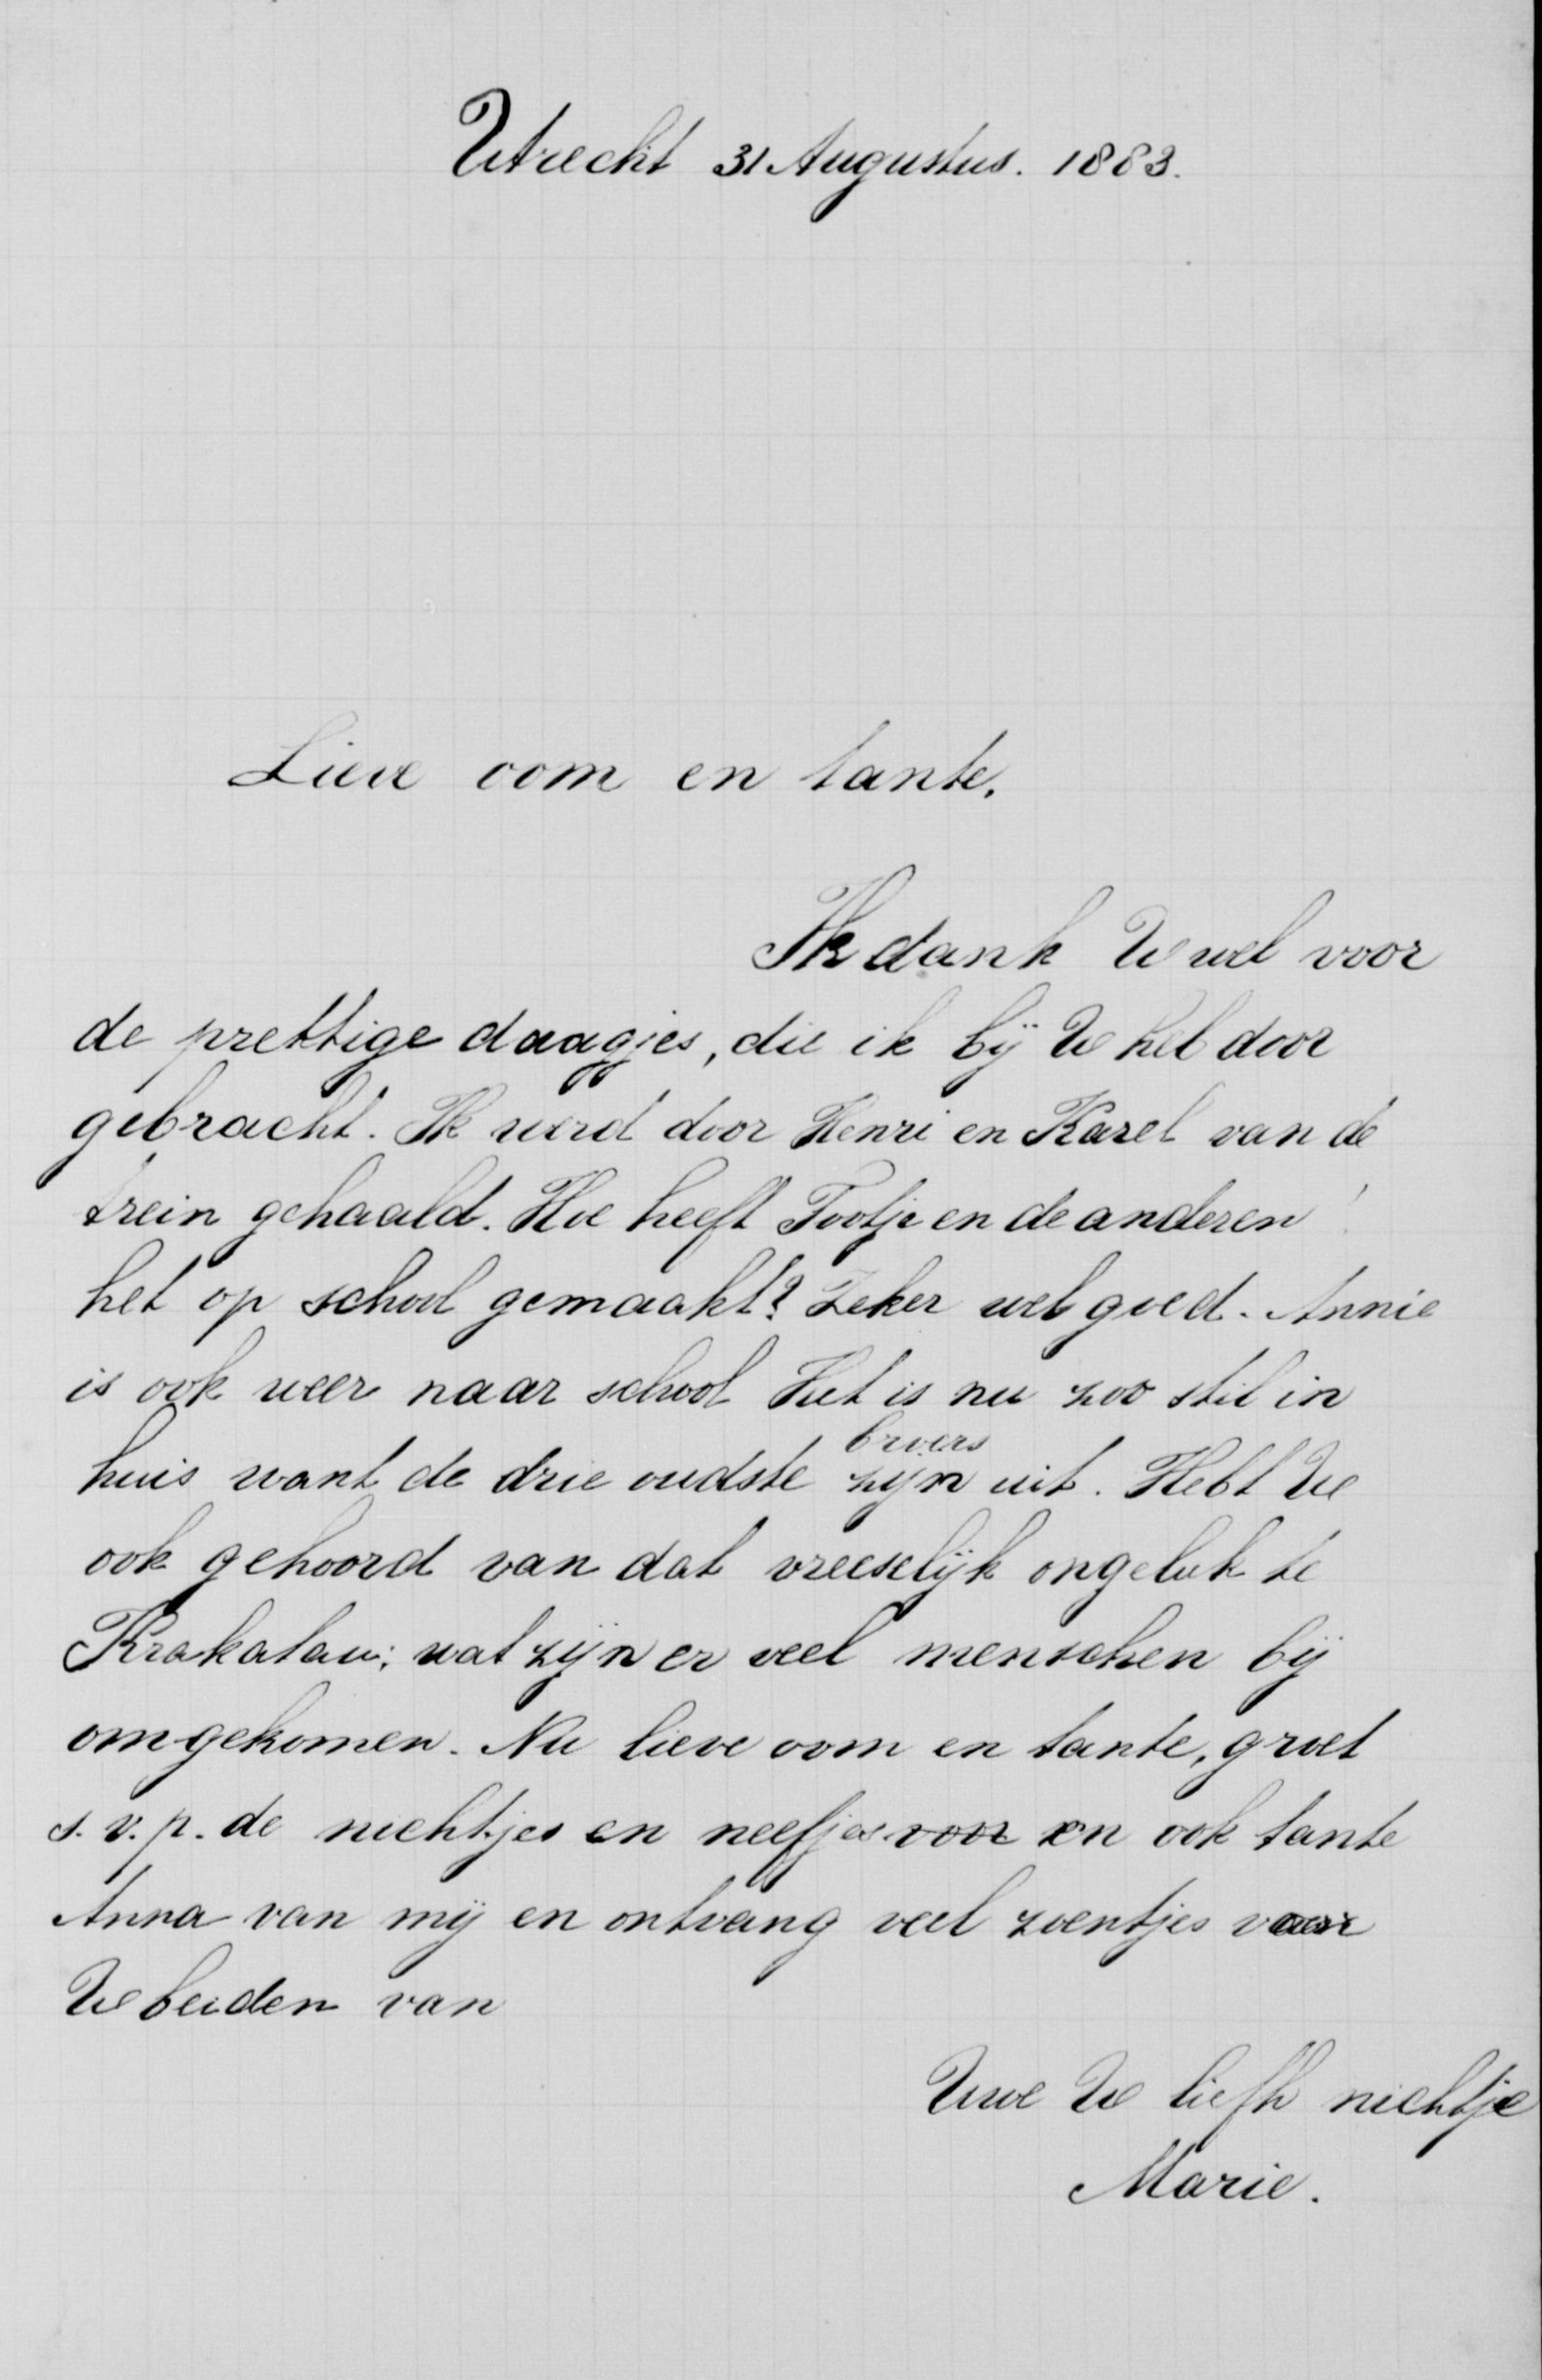 Utrecht 31 Augustus. 1883.
Lieve oom en tante.
Ik dank U wel voor
de prettige daagjes, die ik bij U heb door
gebracht. Ik werd door Henri en Karel van de
trein gehaald. Hoe heeft Tootje en de anderen
het op school gemaakt? Zeker wel goed. Annie
is ook weer naar school Het is nu zoo stil in
broers
huis want de drie oudste zijn uit. Hebt U
ook gehoord van dat vreeselijk ongeluk te
Krakatau; wat zijn er veel menschen bij
omgekomen. Nu lieve oom en tante, groet
s. v. p. de nichtjes en neefjes voor en ook tante
Anna van mij en ontvang veel zoentjes voor
U beiden van
Uwe U liefh nichtje
Marie.